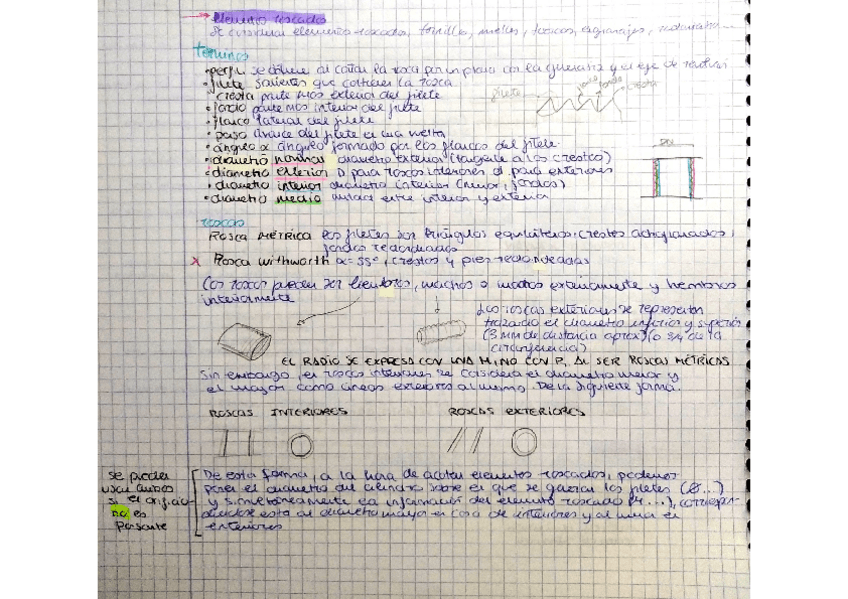 Elementos roscados
Se consideran elementos roscados, tornillos, muelles, tuercas, engranajes,
términos
·perfil se obtiene al cortar la rosca por un plano con la generatriz y el eje de
·filete salientes que contienen la rosca
·cresta parte más exterior del filete
·fondo parte mas interior del filete
·flanco lateral del filete
·paso avance del filete en una vuelta
·ángulo α ángulo formado por los flancos del filete
·diametro nominal diametro exterior (tangente a las crestas)
·diámetro exterior D para roscas interiores d para exteriores
·diametro interior diametro interior (menor, fondos)
·diametro medio entre interior y exterior
filete
fondo
cresta
roscas
ROSCA MÉTRICA los filetes son triángulos equiláteros, crestas achaflanadas,
fondos redondeados
Rosca withworth α=55º, crestas y pies redondeadas
Las roscas pueden ser machos o exteriormente y hembras
interiormente
Las roscas exteriores se representan
trazando el diametro inferior y superior
(3 MM de distancia aprox) (o 3/4 de la
circunferencia)
EL RADIO SE EXPRESA CON UNA M NO CON R, AL SER ROSCAS MÉTRICAS
Sin embargo, en roscas interiores se considera el diametro menor y
el mayor como lineas De la siguiente forma.
ROSCAS INTERIORES
ROSCAS EXTERIORES
Se pueden
usar ambos
si el orificio
no es
pasante
De esta forma, a la hora de acotar elementos roscados, podemos
poner el diametro del cilindro sobre el que se los filetes (Ø...)
y simultaneamente la información del elemento roscado (M...),
esta al diametro mayor en caso de interiores y al
exteriores